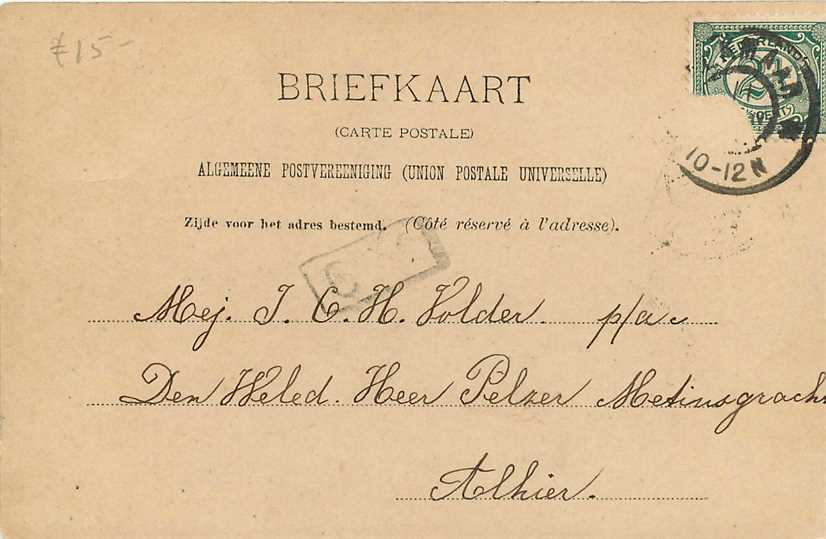 £15-
NEDERLAND
BRIEFKAART
(CARTE POSTALE)
10-12N
ALGEMEENE POSTVEREENIGING (UNION POSTALE UNIVERSELLE)
Zijde voor het adres bestemd. (Côté réservé à l'adresse).
Mej. J. C. H. Volder. p/a
Den Weled. Heer Pelzer Metinsgracht
Alhier.